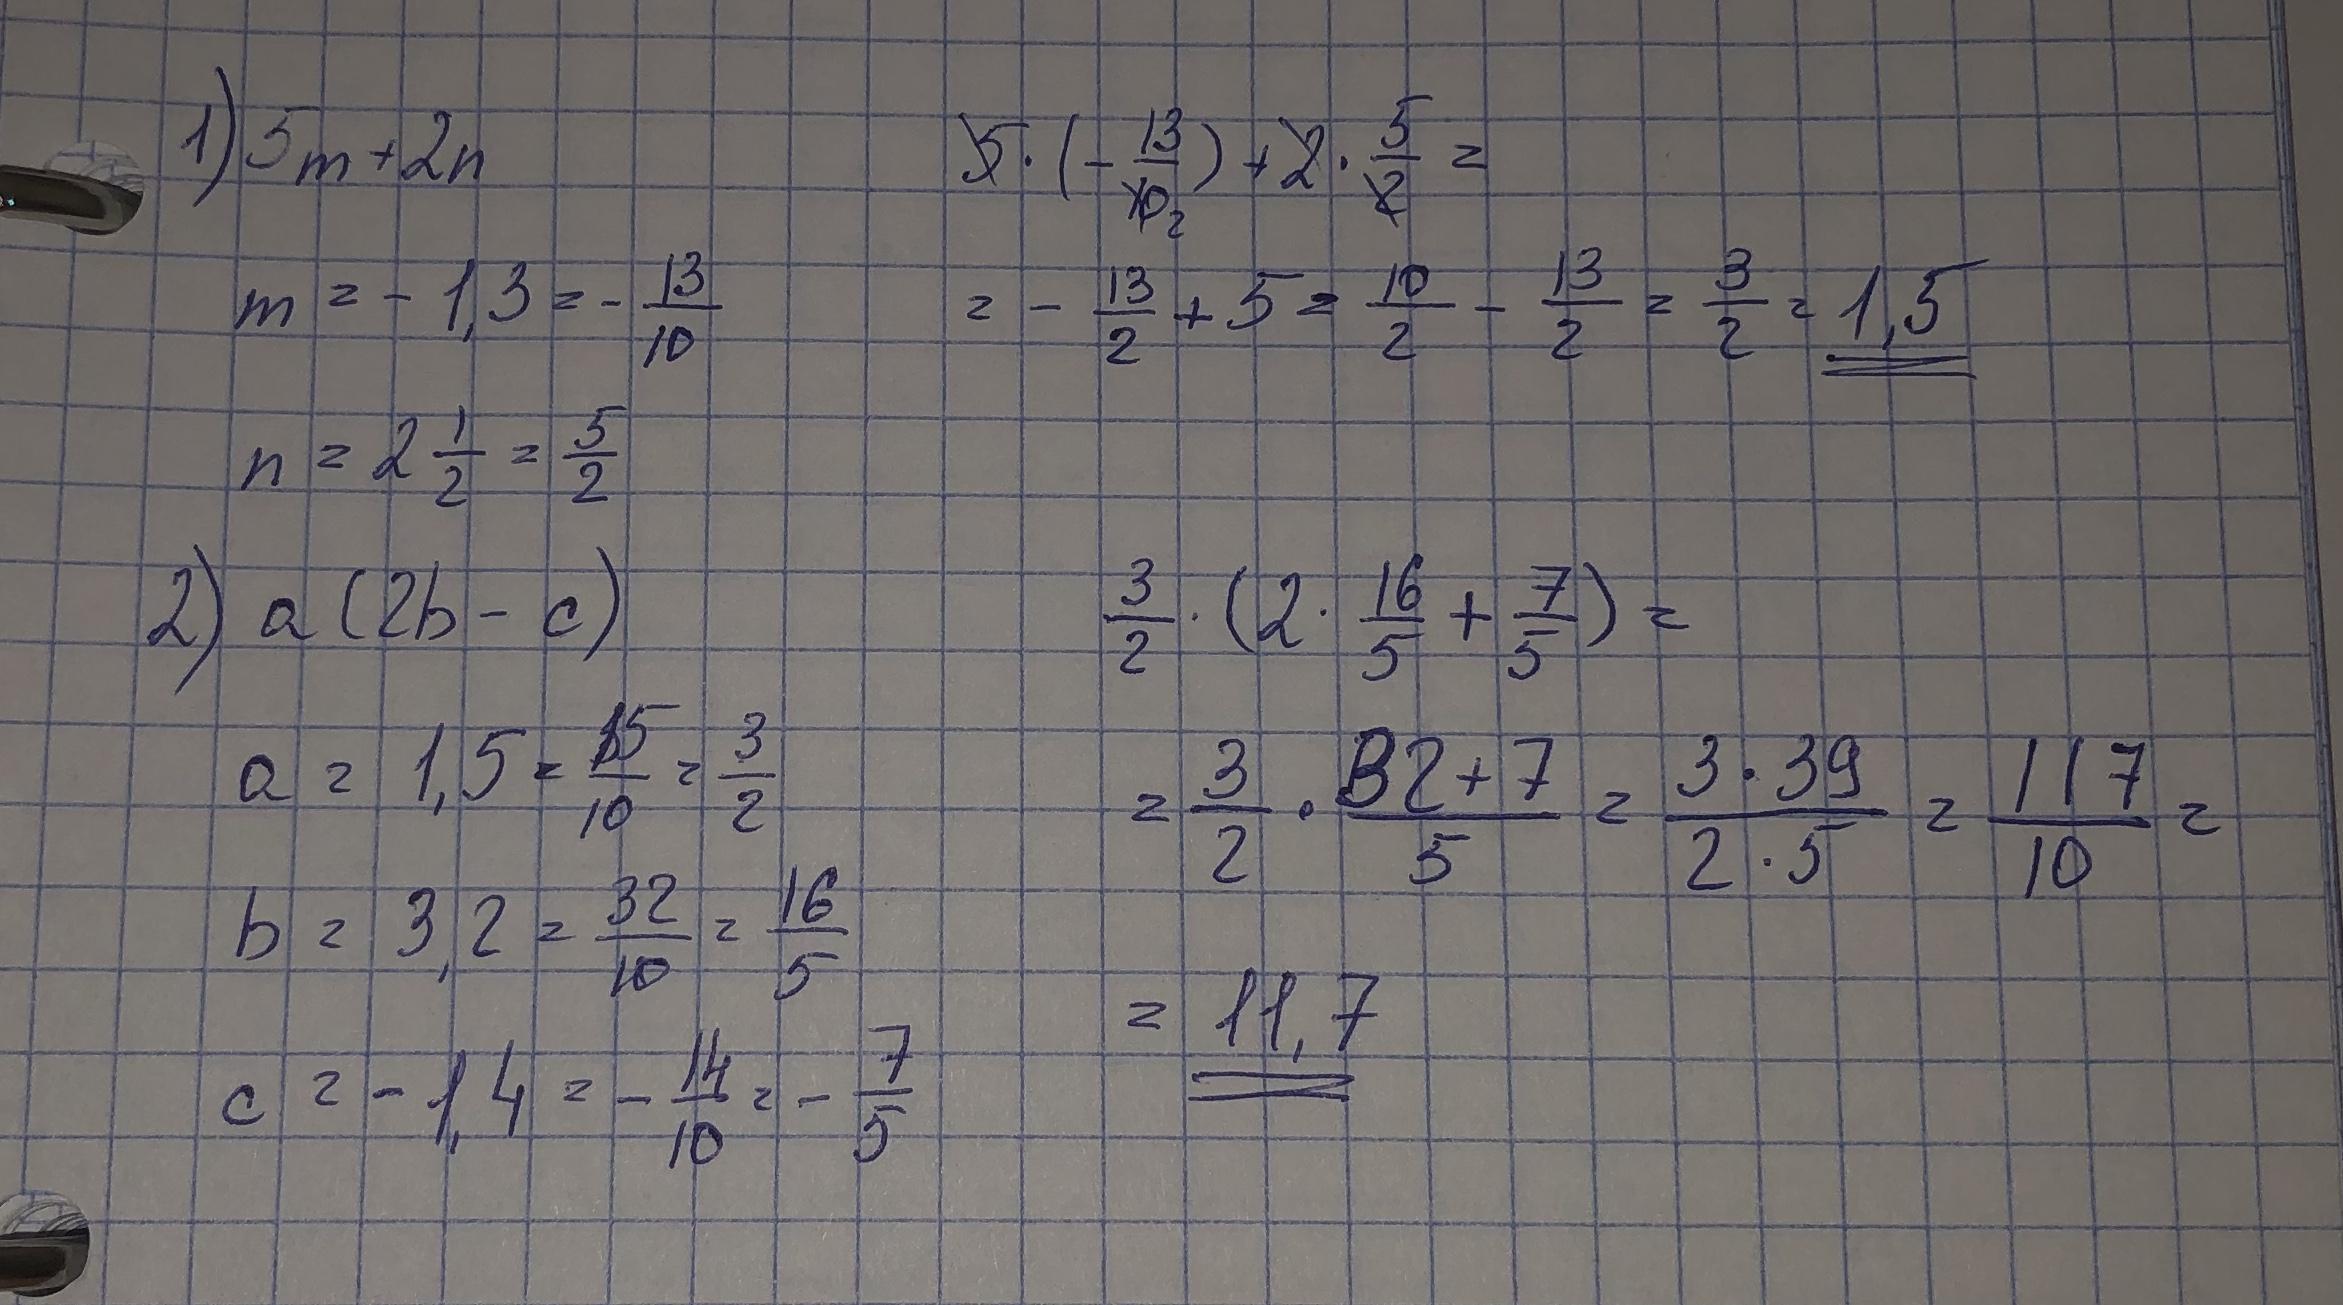 1) 5m + 2n
m = - 1,3 = - 13/10
n = 2 1/2 = 5/2
5 · (- 13/10 2) + 2 · 5/2 =
= - 13/2 + 5 = 10/2 - 13/2 = 3/2 = 1,5
2) a (2b - c)
a = 1,5 = 15/10 = 3/2
b = 3,2 = 32/10 = 16/5
c = - 1,4 = - 14/10 = - 7/5
3/2 · (2 · 16/5 + 7/5) =
= 3/2 · 32 + 7/5 = 3 · 39/2 · 5 = 117/10 =
= 11,7